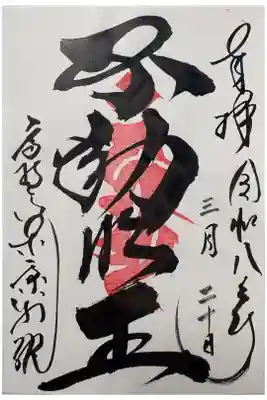 奉拝 令和八年
三月二十日
不動明王
高野山東京別院